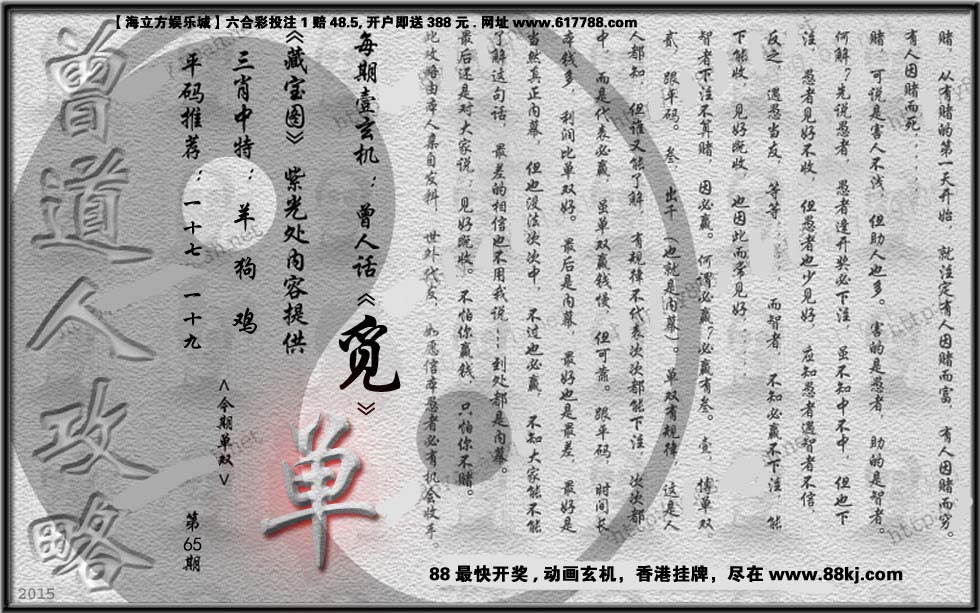 【海立方娱乐城】六合彩投注1赔48.5,开户即送388元.网址www.617788.com
赌，从有赌的第一天开始，就注定有人因赌而富，有人因赌而穷。
有人因赌而死，......
赌，可说是害人不浅，但助人也多。害的是愚者，助的是智者。
何解？先说愚者，愚者逢开奖必下注，虽不知中不中，但也下
注，愚者见好不收，但愚者也少见好，应知愚者遇智者不信，
反之，遇愚当友，等等......，而智者，不知必赢不下注，能
下能收，见好既收，也因此而常见好，......
智者下注不算赌，因必赢。何谓必赢？必赢有叁。壹，博单双
贰，跟平码。叁，出千（也就是内幕）。单双有规律，这是人
人都知，但谁又能了解，有规律不代表次次都能下注，次次都
中，而是代表必赢，虽单双赢钱慢，但可靠。跟平码，时间长
本钱多，利润比单双好。最后是内幕，最好也是最差，最好是
当然真正内幕，但也没法次次中，不过也必赢，不知大家能不能
了解这句话，最差的相信也不用我说......到处都是内幕。
最后还是对大家说：见好既收。不怕你赢钱，只怕你不赌。
此攻略由本人集自发料，世外代友，如愿信本愚者必有机会收手。
每期壹玄机：曾人话《觅》
《藏宝图》紫光处内容提供
三肖中特：羊 狗 鸡
平码推荐：一十七 一十九
<今期单双>
单
第65期
曾道人攻略
88最快开奖,动画玄机，香港挂牌，尽在www.88kj.com
2015